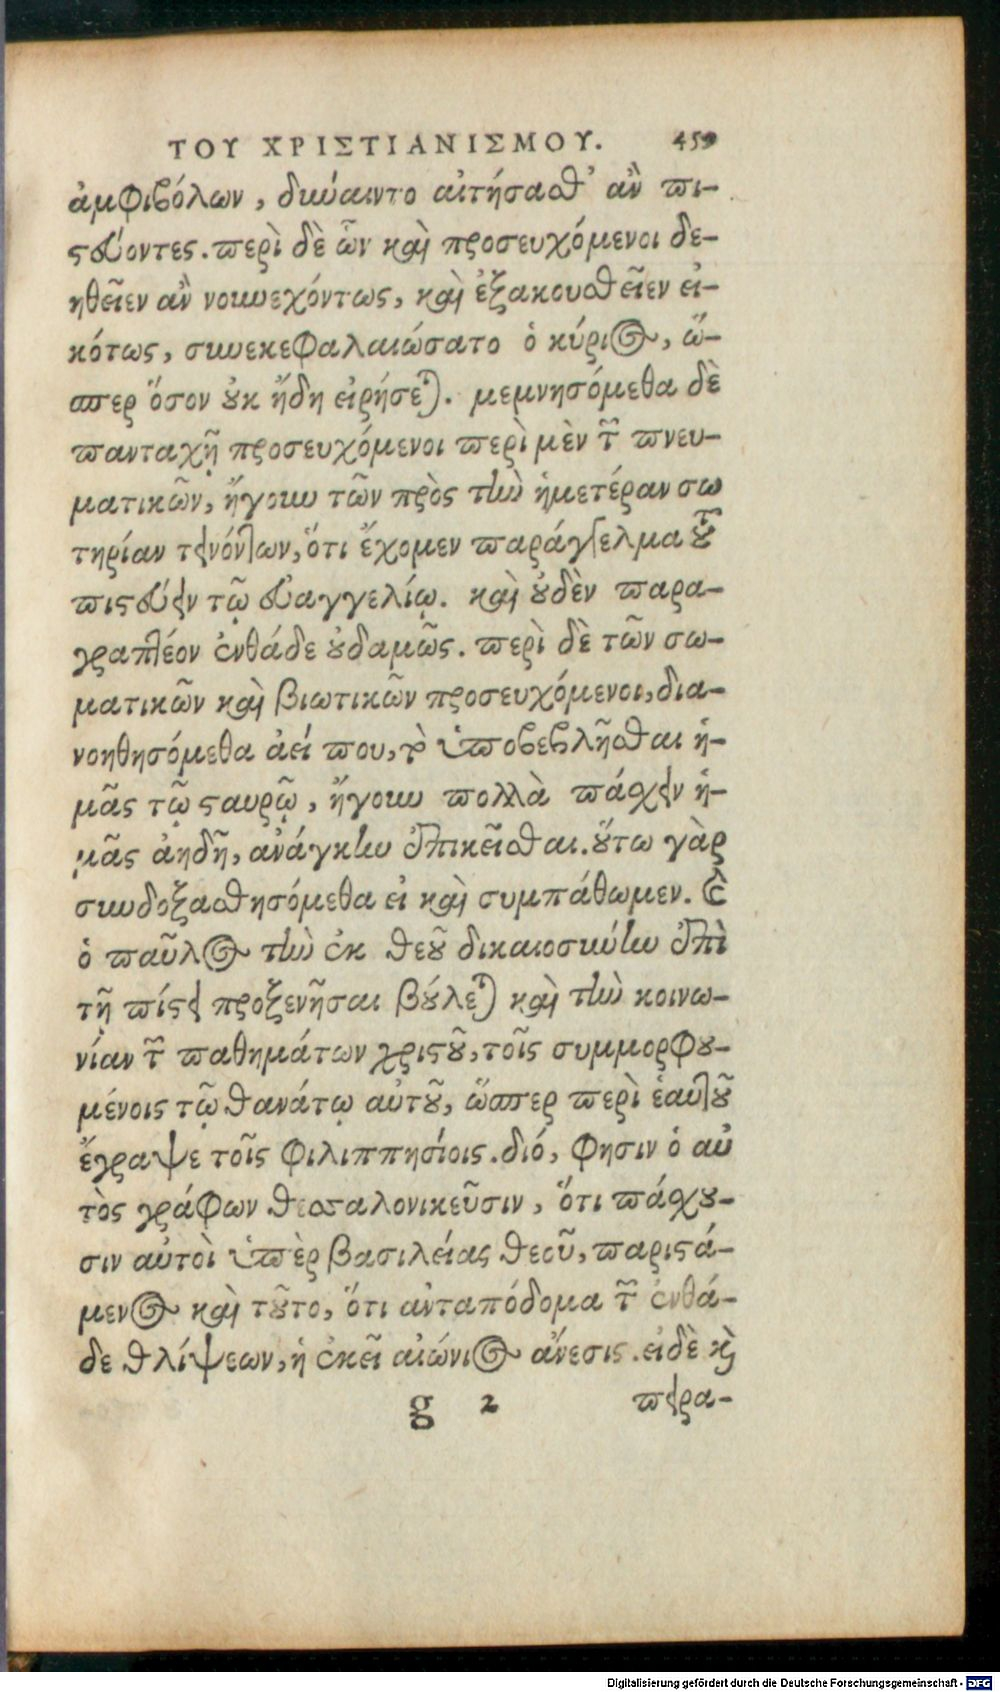 ΤΟΥ ΧΡΙΣΤΙΑΝΙΣΜΟΥ. 459
ἀμφιβόλων, δύναιντο αἰτήσασθ' ἂν πι-
στεύοντες. περὶ δὲ ὧν καὶ προσευχόμενοι δε-
ηθεῖεν ἂν νουνεχόντως, καὶ ἐξακουσθεῖεν εἰ-
κότως, συνεκεφαλαιώσατο ὁ κύριος, ὥ-
σπερ ὅσον οὐκ ἤδη εἰρήσεται. μεμνησόμεθα δὲ
πανταχῆ προσευχόμενοι περὶ μὲν τῶν πνευ-
ματικῶν, ἤγουν τῶν πρὸς τὴν ἡμετέραν σω
τηρίαν τεινόντων, ὅτι ἔχομεν παράγγελμα τοῦ
πιστεύειν τῷ εὐαγγελίῳ. καὶ οὐδὲν παρα-
γραπτέον ἐνθάδε οὐδαμῶς. περὶ δὲ τῶν σω-
ματικῶν καὶ βιωτικῶν προσευχόμενοι, δια-
νοηθησόμεθα ἀεί που, τὸ ὑποβεβλῆσθαι ἡ-
μᾶς τῷ σταυρῷ, ἤγουν πολλὰ πάσχειν ἡ-
μᾶς ἀηδῆ, ἀνάγκην ἐπικεῖσθαι. οὕτω γὰρ
συνδοξασθησόμεθα εἰ καὶ συμπάθωμεν. καὶ
ὁ παῦλος τὴν ἐκ θεοῦ δικαιοσύνην ἐπὶ
τῇ πίστει προξενῆσαι βούλεται καὶ τὴν κοινω-
νίαν τῶν παθημάτων χριστοῦ, τοῖς συμμορφου-
μένοις τῷ θανάτῳ αὐτοῦ, ὥσπερ περὶ ἑαυτοῦ
ἔγραψε τοῖς φιλιππησίοις. διό, φησιν ὁ αὐ
τὸς γράφων θεσσαλονικεῦσιν, ὅτι πάσχου-
σιν αὐτοὶ ὑπὲρ βασιλείας θεοῦ, παριστά-
μενος καὶ τοῦτο, ὅτι ἀνταπόδομα τῶν ἐνθά-
δε θλίψεων, ἡ ἐκεῖ αἰώνιος ἄνεσις. εἰ δὲ καὶ
g 2 πειρα-
Digitalisierung gefördert durch die Deutsche Forschungsgemeinschaft - DFG